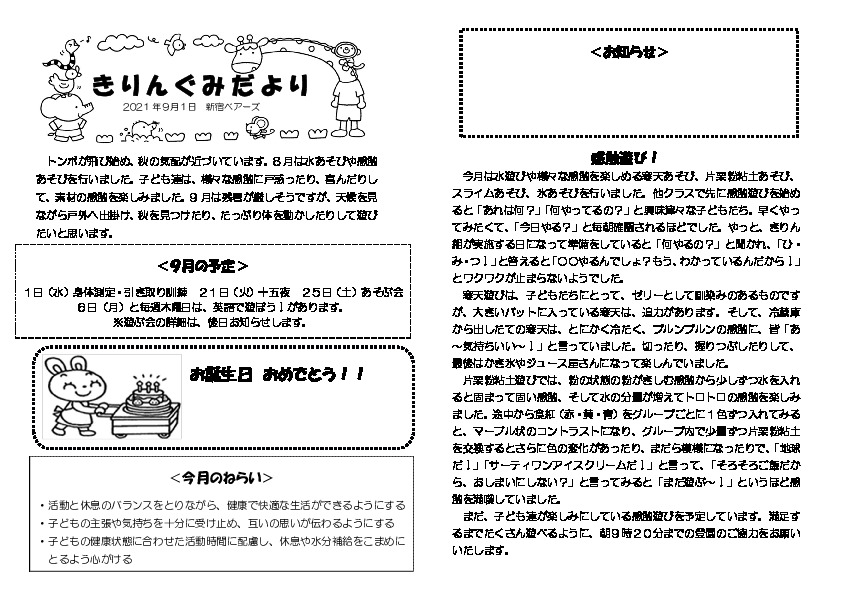 きりんぐみだより
2021年9月1日　新宿ベアーズ
トンボが飛び始め、秋の気配が近づいています。8月は水あそびや感触
あそびを行いました。子ども達は、様々な感触に戸惑ったり、喜んだりし
て、素材の感触を楽しみました。9月は残暑が厳しそうですが、天候を見
ながら戸外へ出掛け、秋を見つけたり、たっぷり体を動かしたりして遊び
たいと思います。
＜9月の予定＞
1日（水）身体測定・引き取り訓練　21日（火）十五夜　25日（土）あそぶ会
6日（月）と毎週木曜日は、英語で遊ぼう！があります。
※遊ぶ会の詳細は、後日お知らせします。
お誕生日 おめでとう！！
＜今月のねらい＞
・活動と休息のバランスをとりながら、健康で快適な生活ができるようにする
・子どもの主張や気持ちを十分に受け止め、互いの思いが伝わるようにする
・子どもの健康状態に合わせた活動時間に配慮し、休息や水分補給をこまめに
とるよう心がける
＜お知らせ＞
感触遊び！
今月は水遊びや様々な感触を楽しめる寒天あそび、片栗粉粘土あそび、
スライムあそび、氷あそびを行いました。他クラスで先に感触遊びを始め
ると「あれは何？」「何やってるの？」と興味津々な子どもたち。早くやっ
てみたくて、「今日やる？」と毎朝確認されるほどでした。やっと、きりん
組が実施する日になって準備をしていると「何やるの？」と聞かれ、「ひ・
み・つ！」と答えると「〇〇やるんでしょ？もう、わかっているんだから！」
とワクワクが止まらないようでした。
寒天遊びは、子どもたちにとって、ゼリーとして馴染みのあるものです
が、大きいバットに入っている寒天は、迫力があります。そして、冷蔵庫
から出したての寒天は、とにかく冷たく、プルンプルンの感触に、皆「あ
～気持ちいい～！」と言っていました。切ったり、握りつぶしたりして、
最後はかき氷やジュース屋さんになって楽しんでいました。
片栗粉粘土遊びでは、粉の状態の粉がきしむ感触から少しずつ水を入れ
ると固まって固い感触、そして水の分量が増えてトロトロの感触を楽しみ
ました。途中から食紅（赤・黄・青）をグループごとに1色ずつ入れてみる
と、マーブル状のコントラストになり、グループ内で少量ずつ片栗粉粘土
を交換するとさらに色の変化があったり、まだら模様になったりで、「地球
だ！」「サーティワンアイスクリームだ！」と言って、「そろそろご飯だか
ら、おしまいにしない？」と言ってみると「まだ遊ぶ～！」というほど感
触を満喫していました。
まだ、子ども達が楽しみにしている感触遊びを予定しています。満足す
るまでたくさん遊べるように、朝9時20分までの登園のご協力をお願い
いたします。